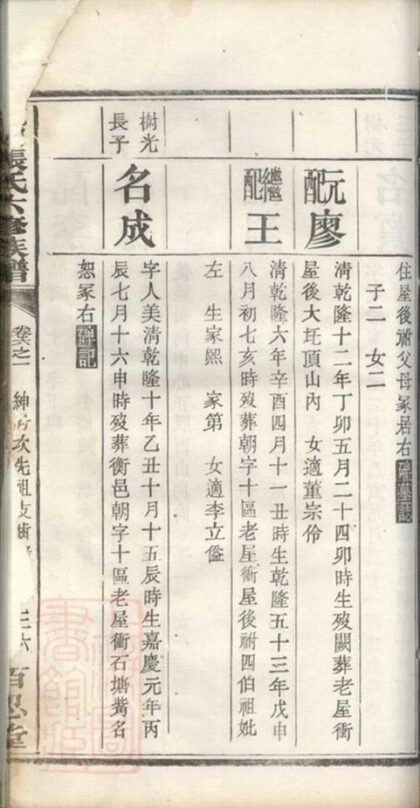 住屋後祔父母冢居右碑墓誌
子二 女二
元配廖
清乾隆十二年丁卯五月二十四卯時生歿闕葬老屋衝
屋後大圫頂山內 女適董宗伶
繼配王
清乾隆六年辛酉四月十一丑時生乾隆五十三年戊申
八月初七亥時歿葬朝字十區老屋衝屋後祔四伯祖妣
左 生家熙 家第 女適李立謚
樹光
長子
名成
字人美清乾隆十年乙丑十月十五辰時生嘉慶元年丙
辰七月十六申時歿葬衡邑朝字十區老屋衝石塘觜名
恕冢右碑記
張氏六修族譜
卷之一
紳 次先祖支
三六
百忍堂